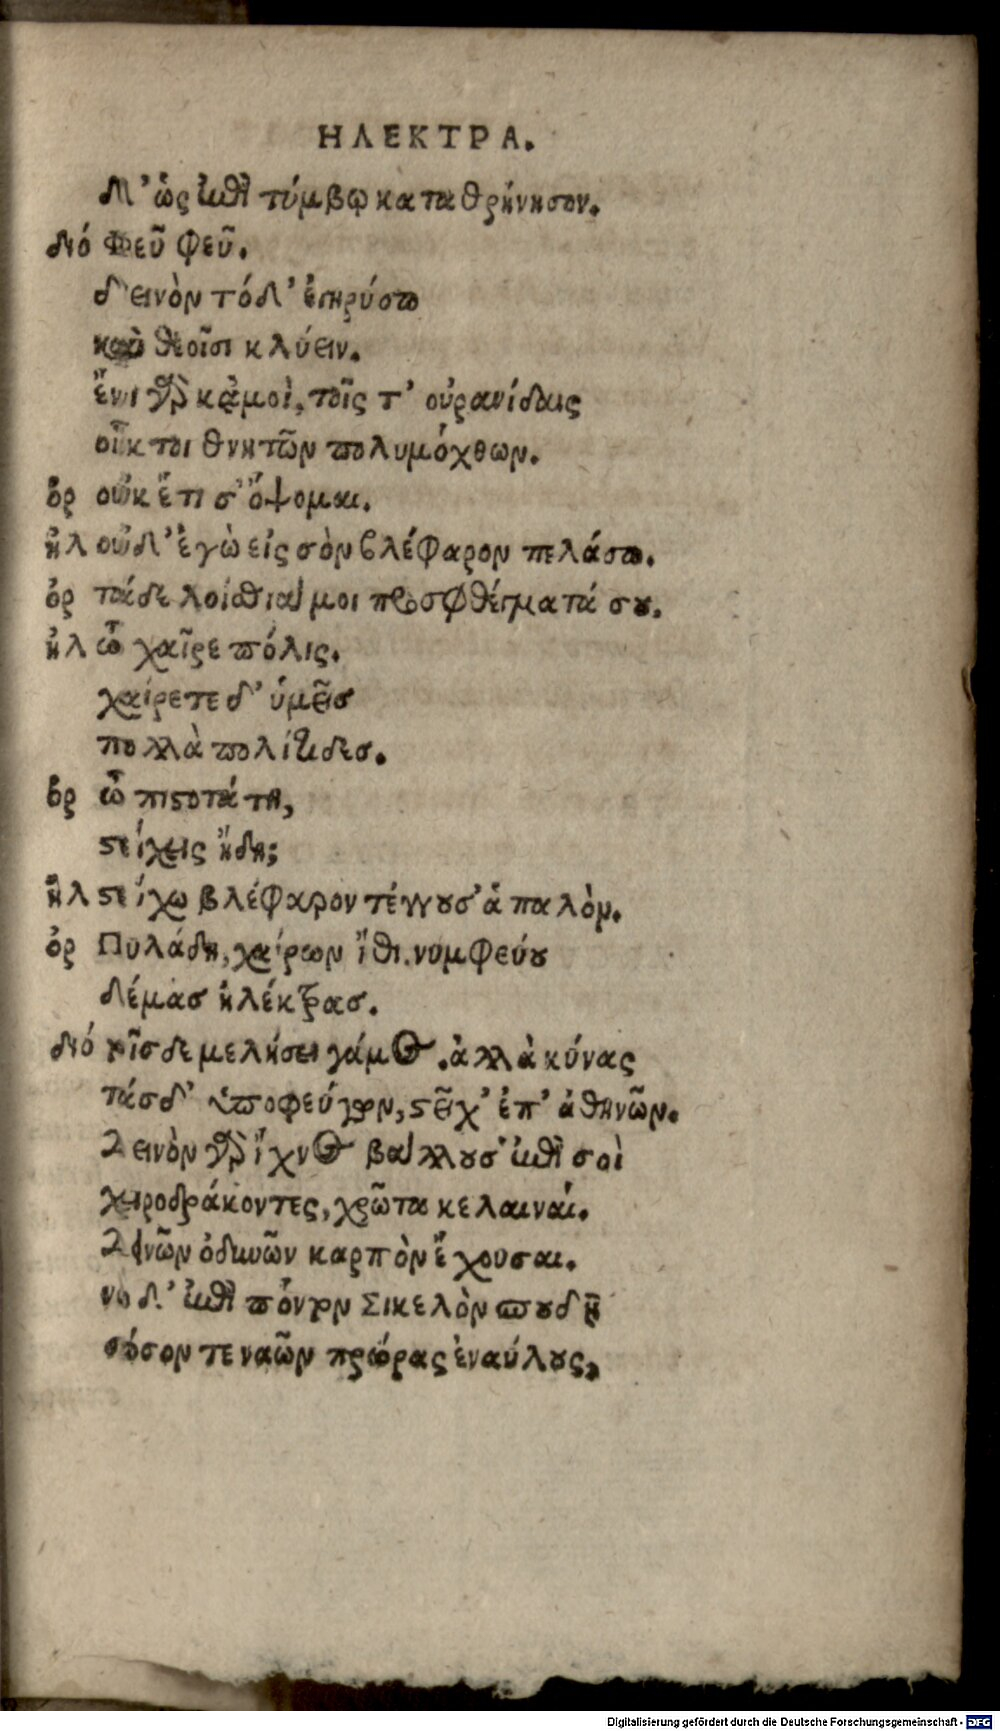 ΗΛΕΚΤΡΑ.
Μ' ὡς ἐπὶ τύμβῳ καταθρήνησον.
διό Φεῦ φεῦ.
δεινὸν τόδ' ἐγηρύσω
καὶ θεοῖσι κλύειν.
ἔνι γὰρ κἀμοὶ, τοῖς τ' οὐρανίδαις
οἶκτοι θνητῶν πολυμόχθων.
ὄρ οὐκ ἔτι σ' ὄψομαι.
ἠλ οὐδ' ἐγὼ εἰς σὸν βλέφαρον πελάσω.
ὀρ τάδε λοίσθιαί μοι προσφθέγματά σου.
ἠλ ὦ χαῖρε πόλις.
χαίρετε δ' ὑμεῖσ
πολλὰ πολίτιδεσ.
ὄρ ὦ πιστοτάτη,
στείχεις ἤδη;
ἠλ στείχω βλέφαρον τέγγουσ' ἁπαλὸν.
ὀρ Πυλάδη, χαίρων ἴθι. νυμφεύου
δέμασ ἠλέκτρασ.
διό τοῖσδε μελήσει γάμος. ἀλλὰ κύνας
τάσδ' ὑποφεύγων, στεῖχ' ἐπ' ἀθηνῶν.
Δεινὸν γὰρ ἴχνος βάλλουσ' ἐπὶ σοὶ
χειροδράκοντες, χρῶτα κελαιναί.
Δεινῶν ὀδυνῶν καρπὸν ἔχουσαι.
νὼ δ' ἐπὶ πόντον Σικελὸν σπουδῇ
σόσον τε ναῶν πρώρας ἐναύλους,
Digitalisierung gefördert durch die Deutsche Forschungsgemeinschaft - DFG